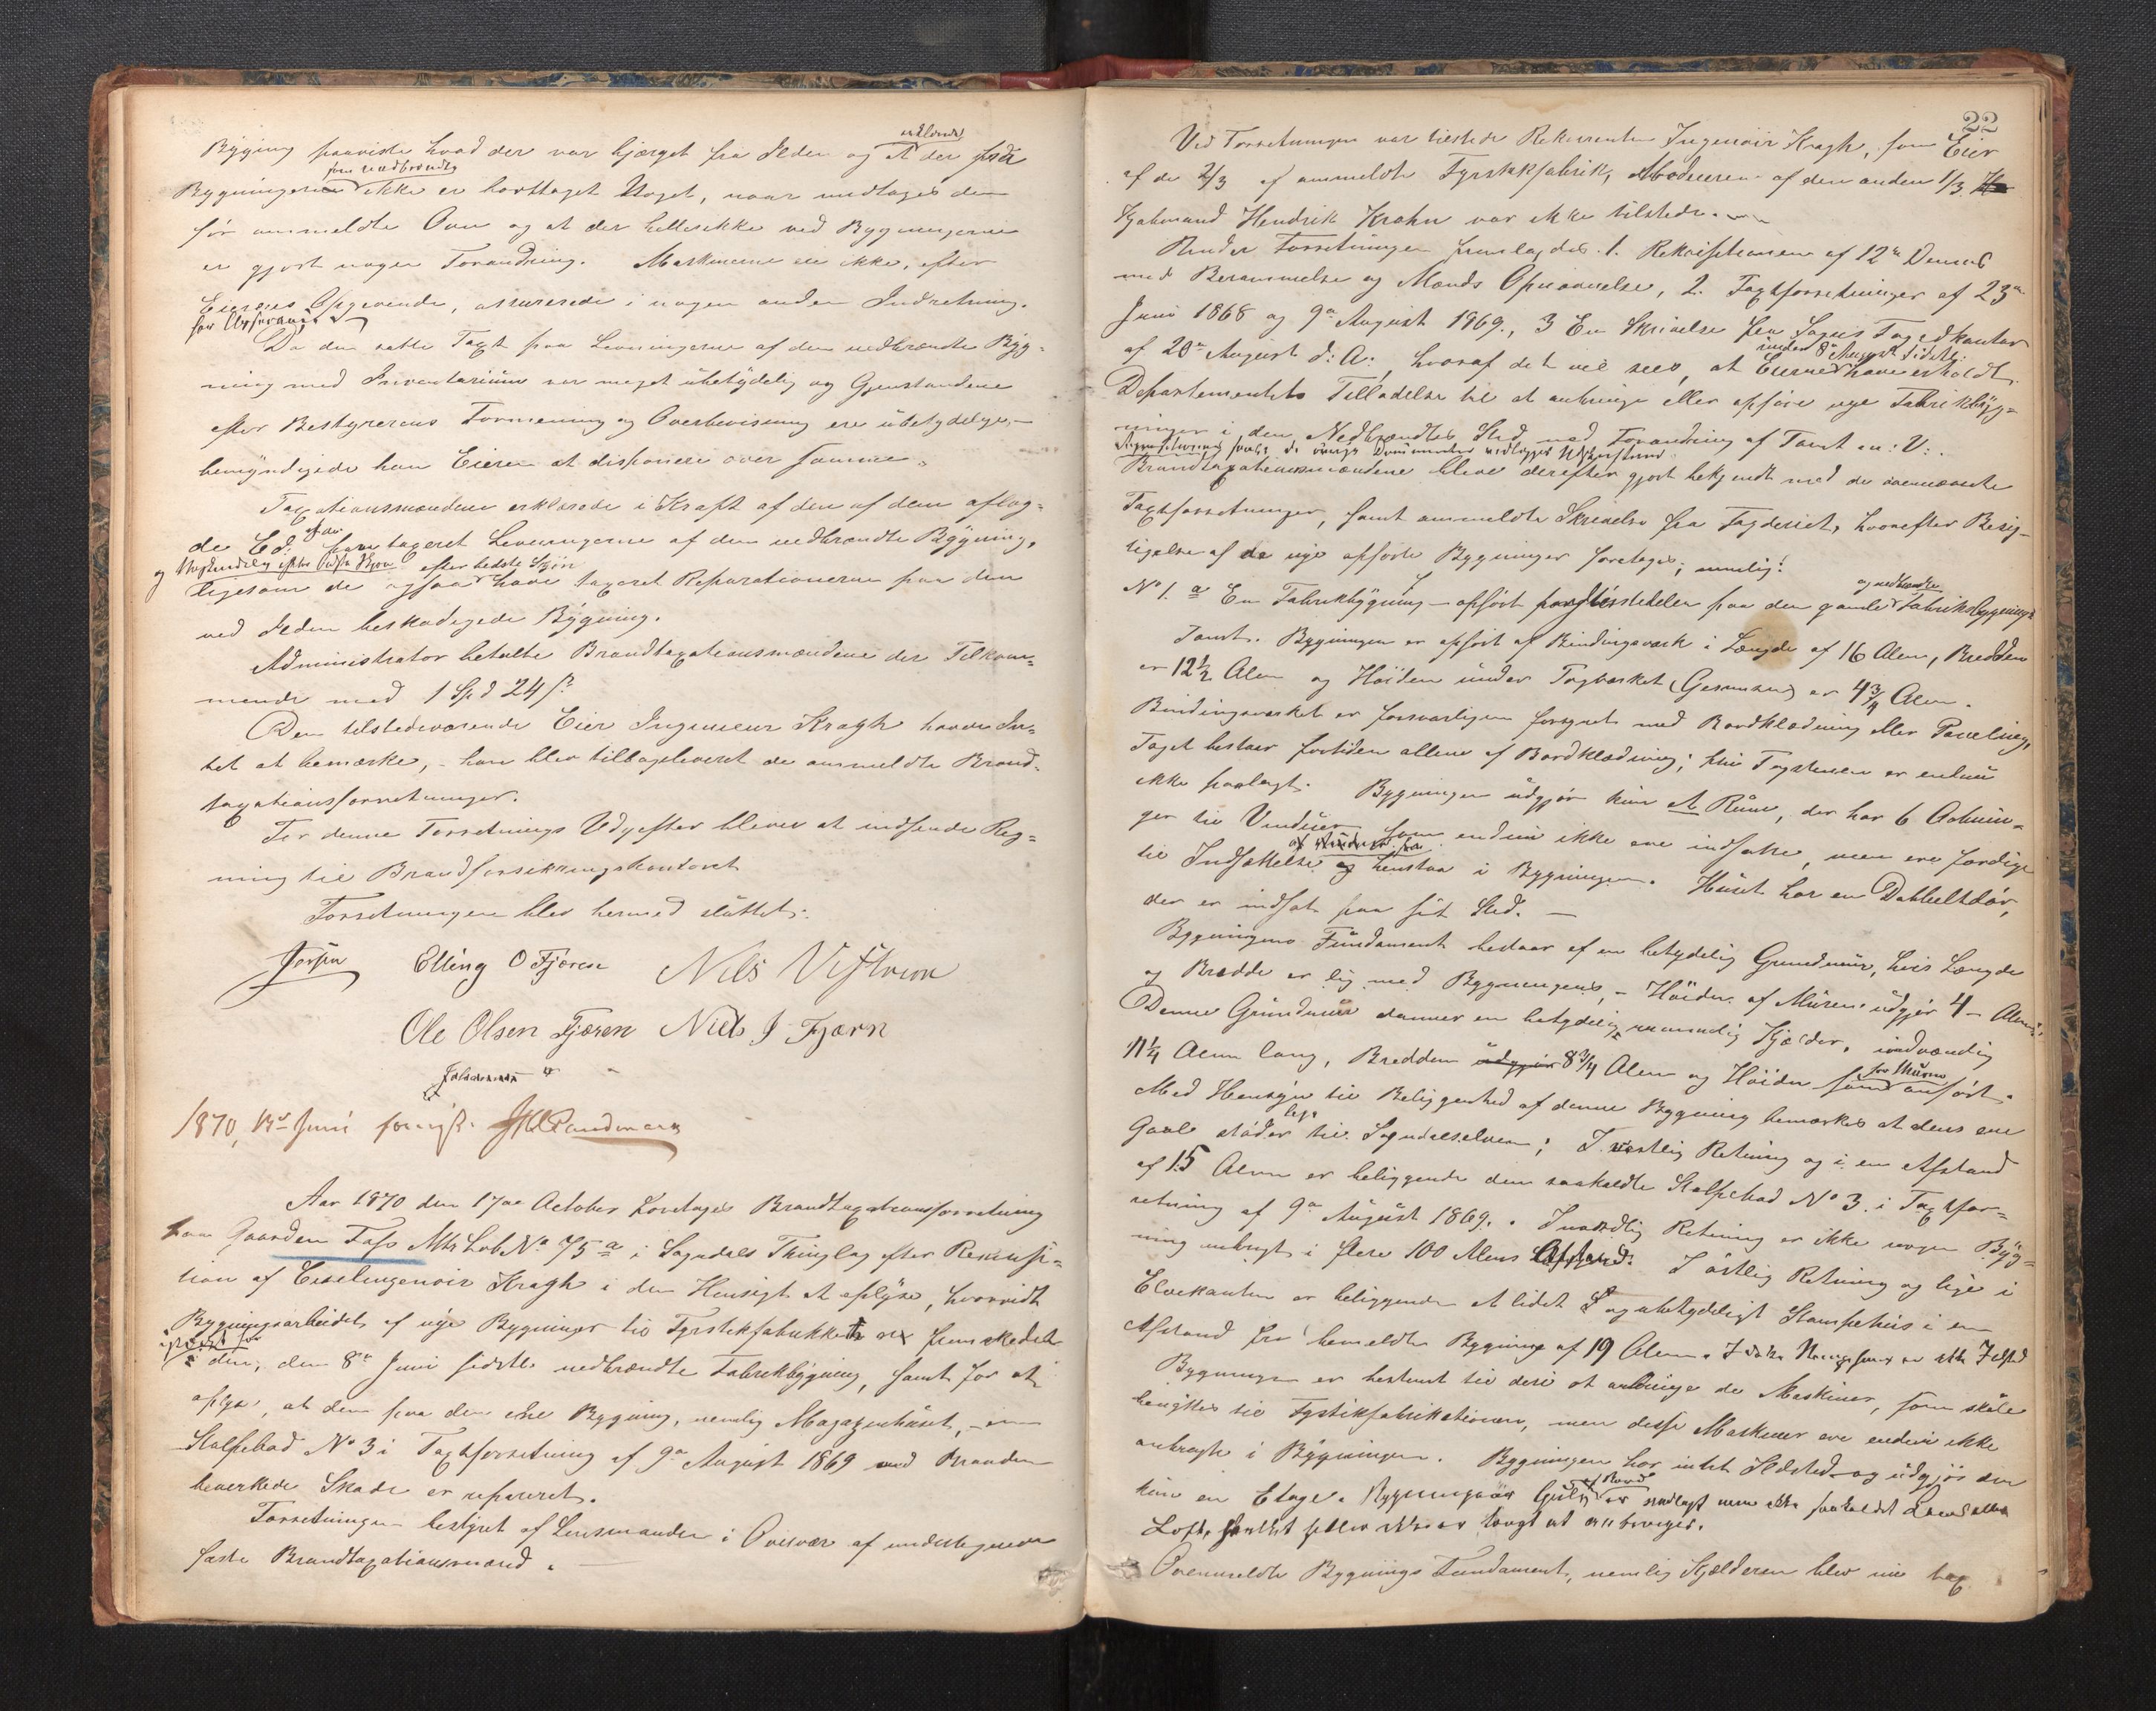 erklærede
Bygning paaviste hvad der var bjerget fra Ilden og at der fra
som nedbrændte
Bygningerne ikke er borttaget Noget, naar undtages den
før ommeldte Ovn og at der hellerikke ved Bygningerne
er gjort nogen Forandring. Maskinerne ere ikke, efter
Eierens Opgivende, assurerede i nogen anden Indretning.
for Assurance
Da den satte Taxt paa Levningerne af den nedbrændte Byg-
ning med Inventarium var meget ubetydelig og Gjenstandene
efter Bestyrerens Formening og Overbevisning ere ubetydelige, -
bemyndigede han Eieren at disponere over samme.
Taxationsmændene erklærede i Kraft af den af dem aflag-
de Ed: at have taxeret Levningerne af den nedbrændte Bygning,
og efter bedste Skjøn
ligesom de ogsaa have taxeret Reparationerne paa den
ved Ilden beskadigede Bygning.
Administrator betalte Brandtaxationsmændene det Tilkom-
mende med 1 Spd 24 ß
Den tilstedeværende Eier Ingenieur Kragh havde In-
tet at bemærke, - han blev tilbageleveret de ommeldte Brand-
taxationsforretninger.
For denne Forretnings Udgifter bliver at indsende Reg-
ning til Brandforsikkringskontoret
Forretningen blev hermed sluttet.
Elling O Fjæren Nils Vistrum
Ole Olsen Fjæren Niels J Fjæren
1870, Juni
Aar 1870 den 17de October foretoges Brandtaxationsforretning
paa Gaarden Foss Mtr Lob No 75 a i Sogndals Thinglag efter Rekvisi-
tion af Civilingeniør Kragh i den Hensigt at oplyse, hvorvidt
Bygningsarbeidet af nye Bygninger til Fyrstikfabrikken er fremskredet
istedet for
den, den 8de Juni sidstl. nedbrændte Fabrikbygning, samt for at
oplyse, at den paa den ene Bygning, nemlig Magazinhuset, - en
Stolpebod No 3 i Taxtforretning af 9de August 1869 ved Branden
bevirkede Skade er repareret.
Forretningen bestyret af Lensmanden i Overvær af undertegnede
faste Brandtaxationsmænd.
22
Ved Forretningen var tilstede Rekvirenten Ingeniør Kragh, som Eier
af de 2/3 af ommeldte Fyrstikfabrik, Meeieren af den anden 1/3
Hendrik Krohn var ikke tilstede.
Under Forretningen fremlagdes 1. Rekvisitionen af 12te Dennes
med Berammelse og Mænds Opnævnelse, 2. Taxtforretninger af 23de
Juni 1868 og 9de August 1869, 3 En Skrivelse fra Sogns Fogedkontor
under 8de August sidstl.
af 20de August d: A:, hvoraf det vil sees, at Eierne have erholdt
Departementets Tilladelse til at anbringe eller opføre nye Fabrikbyg-
ninger i den Nedbrændtes Sted med Forandring af Tomt m: V:
Brandtaxationsmændene bleve derefter gjort bekjendt med de ovennævnte
Taxtforretninger, samt ommeldte Skrivelse fra Fogderiet, hvorefter Besig-
tigelse af de nye opførte Bygninger foretoges, nemlig:
og nedbrændte
No 1. a En Fabrikbygning - opført paa den gamle Fabriksbygnings
Tomt. Bygningen er opført af Bindingsverk i Længde af 16 Alen, Bredden
er 12½ Alen og Høiden under Tagverket (Gesimsen) er 4¾ Alen.
Bindingsverket er forsvarligen forsynet med Bordklædning eller Paneling,
Taget bestaar fortiden allene af Bordklædning; thi Tagstenen er endnu
ikke paalagt. Bygningen udgjør kun et Rum, der har 6 Aabnin-
ger til Vinduer som endnu ikke ere indsatte, men ere færdige
til Indsættelse og henstaa i Bygningen. Huset har en Dobbeltdør,
der er indsat paa sit Sted. -
Bygningens Fundament bestaar af en betydelig Grundmur, hvis Længde
og Bredde er lig med Bygningens, - Høiden af Muren udgjør 4 - Alen.
Denne Grundmur danner en betydelig rummelig Kjælder, indvendig
11¼ Alen lang, Bredden 8¾ Alen og Høiden som for Muren anført.
Med Hensyn til Beliggenhed af denne Bygning bemærkes at dens ene
lige
Gavl støder til Sogndalselven; I vestlig Retning og i en Afstand
af 15 Alen er beliggende den saakaldte Stolpebod No 3. i Taxtfor-
retning af 9de August 1869. I nordlig Retning er ikke nogen Byg-
ning anbragt i flere 100 Alens Afstand. I østlig Retning og lige i
Elvekanten er beliggende et lidet og ubetydeligt Stampehus i en
Afstand fra bemeldte Bygning af 19 Alen. I dette er ikke Ildsted
Bygningen er bestemt til deri at anbringe de Maskiner, som skule
benyttes til Fyrstikfabrikationen, men disse Maskiner ere endnu ikke
anbragte i Bygningen. Bygningen har intet Ildsted og udgjør den
af Bord
kun en Etage. Bygningens Gulv er nedlagt men ikke saakaldet eller
Loft,
Ovenmeldte Bygnings Fundament, nemlig Kjælderen blev nu tax